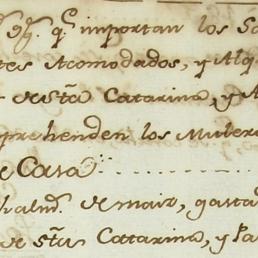 qᵉ importan los Sa
tes Acomodados, y Alq
de Stᵃ Catarina, y A
prehenden los Mulero
e Casa
de maiz, gasta
de Stᵃ Cattarina, y Pa